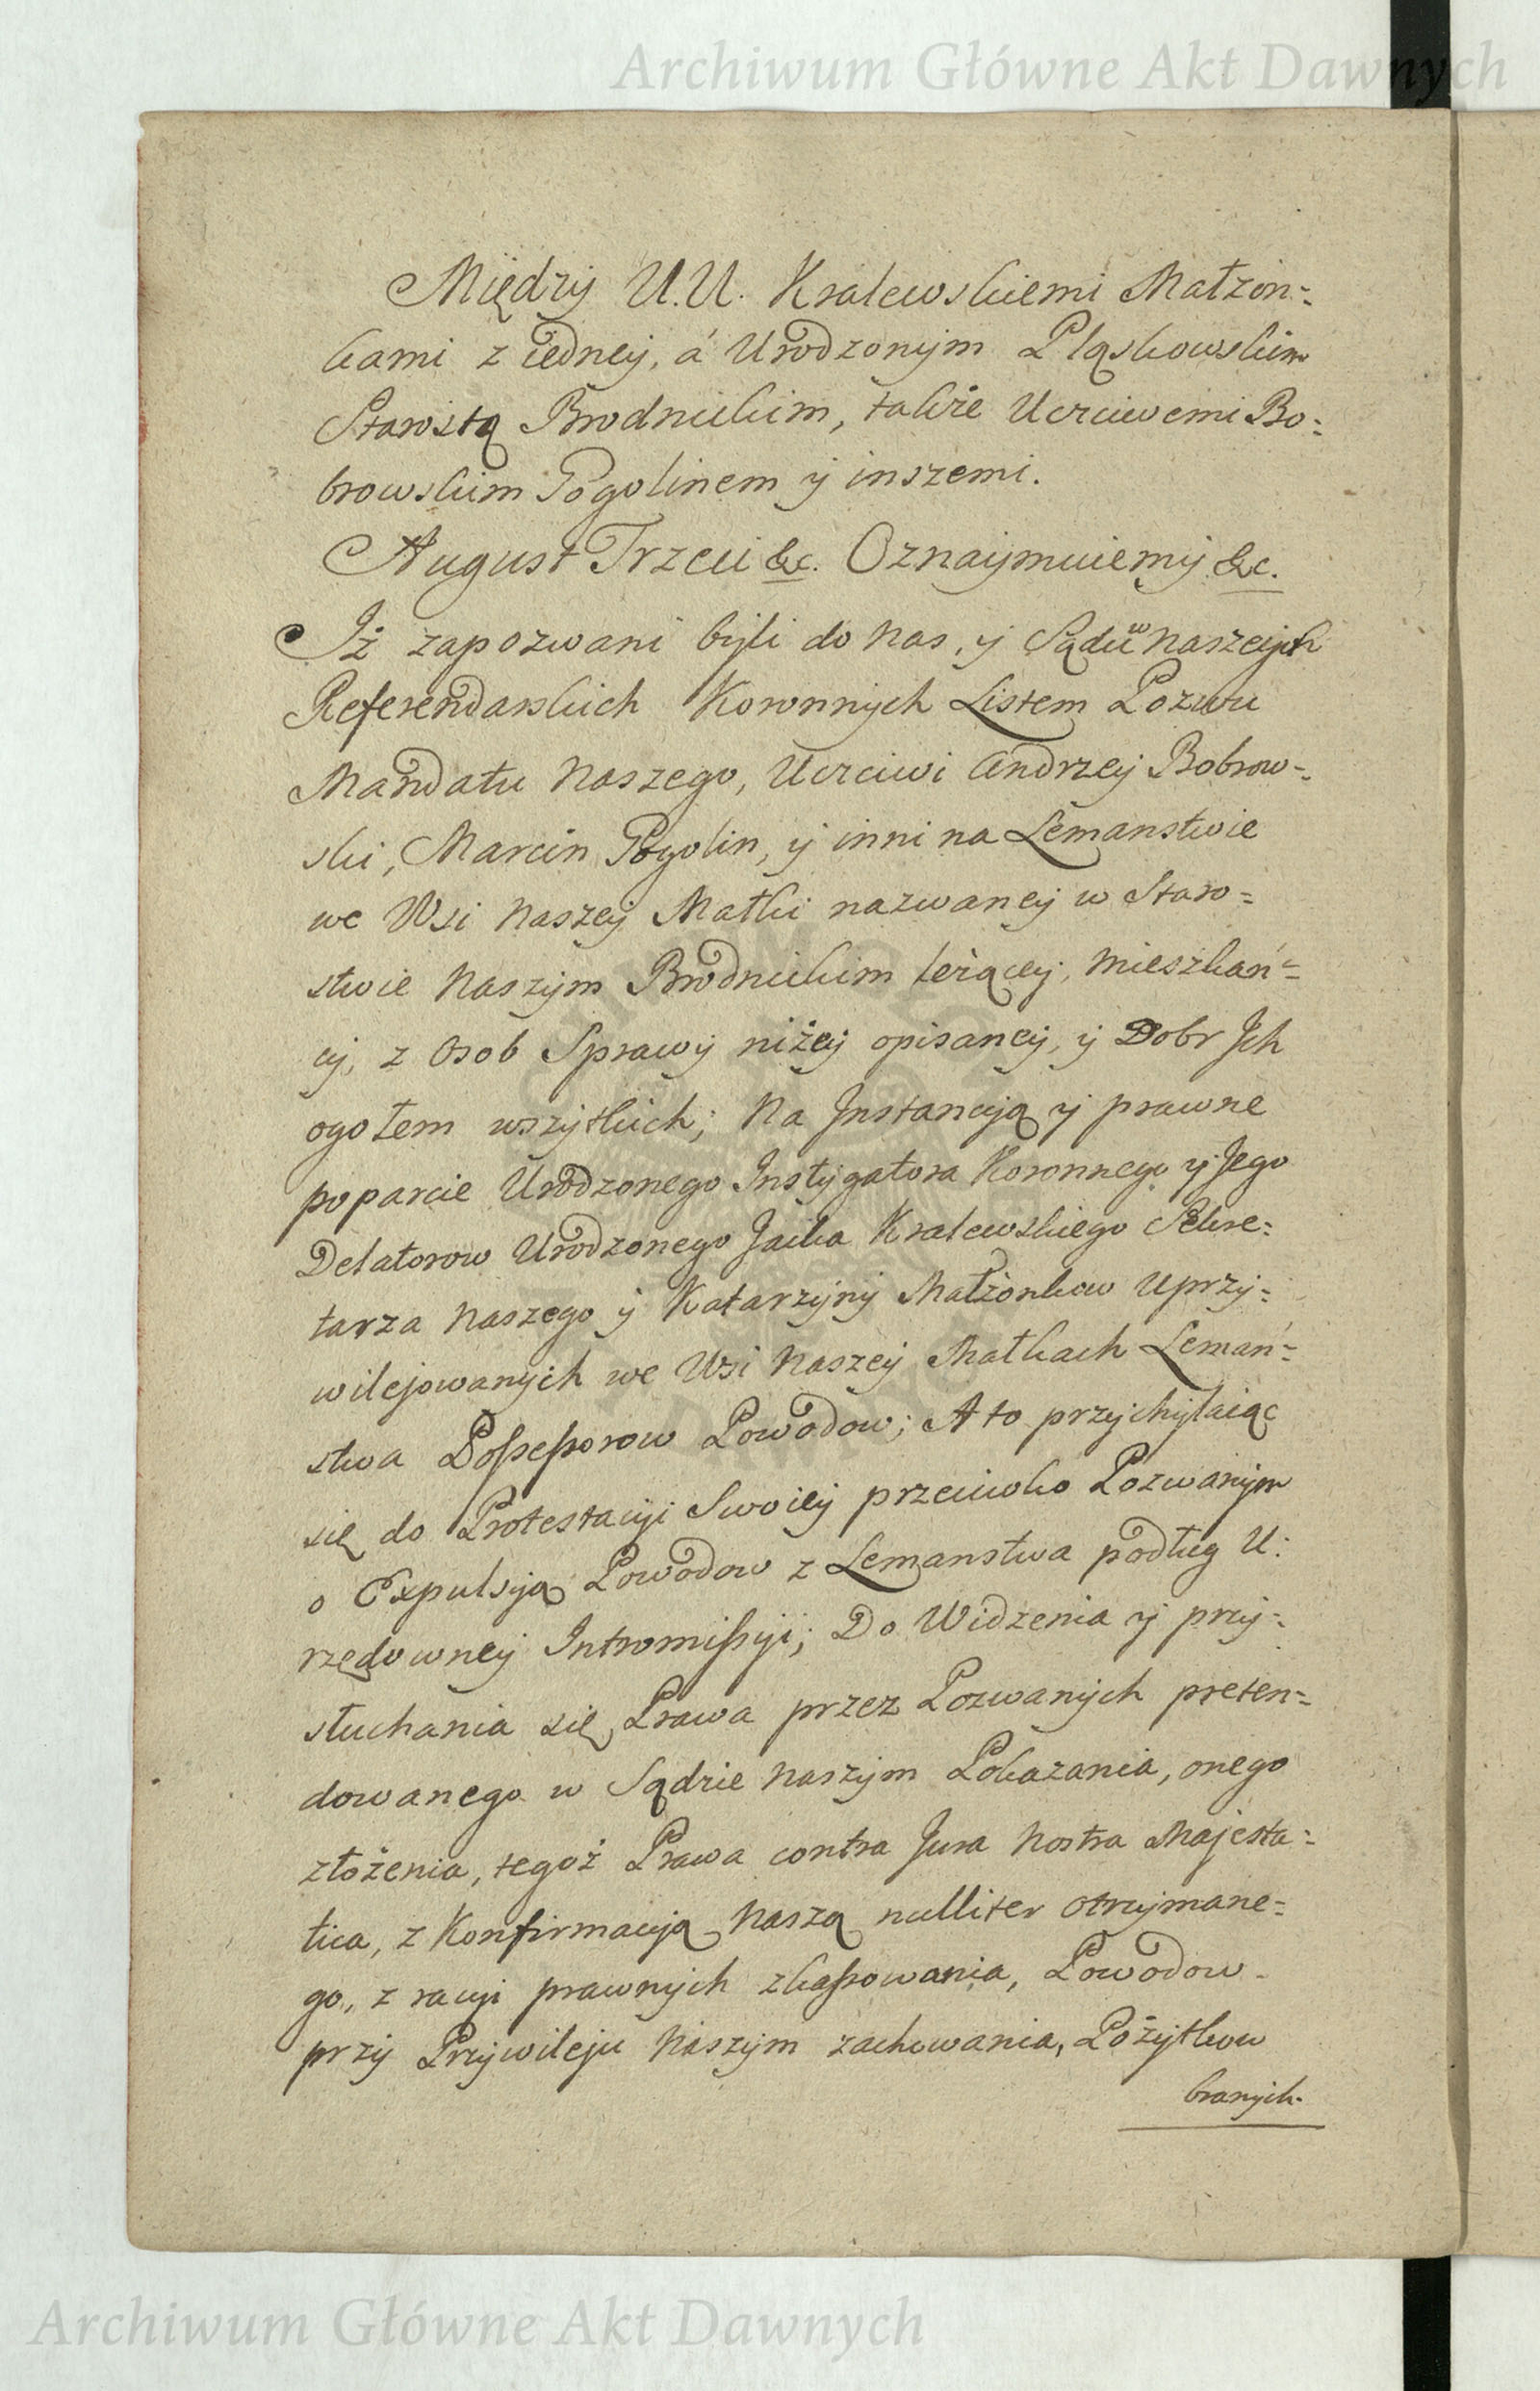 Archiwum Główne Akt Dawnych
Między U.U. Kralewskiemi Małżon=
kami z iedney, á Urodzonym Pląskowskim
Starostą Brodnickim, także Uczciwemi Bo=
browskim Pogolinem y inszemi.
August Trzeci &c. Oznaymuiemy &c.
Iż zapozwani byli do Nas, y Sądúw Naszych
Referendarskich Koronnych Listem Pozwu
Mandatu Naszego, Uczciwi Andrzey Bobrow=
ski, Marcin Pogolin, y inni na Lemanstwie
we Wsi Naszey Małki nazwaney w Staro=
stwie Naszym Brodnickim leżącey, Mieszkań=
cy, z Osob Sprawy niżey opisaney, y Dobr Jch
ogołem wszytkich; Na Jnstancyją y prawne
poparcie Urodzonego Instygatora Koronnego y Jego
Delatorow Urodzonego Jacka Kralewskiego Sekre=
tarza Naszego y Katarzyny Małżonkow Uprzy=
wilejowanych we Wsi Naszey Małkach Leman=
stwa Possessorow Powodow; A to przychylaiąc
się do Protestacyi Swoiey przeciwko Pozwanym
o Expulsyją Powodow z Lemanstwa podług U:
rzędowney Intromissyi; Do Widzenia y przy=
słuchania się, Prawa przez Pozwanych preten=
dowanego w Sądzie Naszym Pokazania, onego
złożenia, tegoż Prawa contra Jura Nostra Majesta=
tica, z Konfirmacyją Naszą nulliter otrzymane=
go, z racyi prawnych zkassowania, Powodow
przy Przywileju Naszym zachowania, Pożytkow
branych.
Archiwum Główne Akt Dawnych